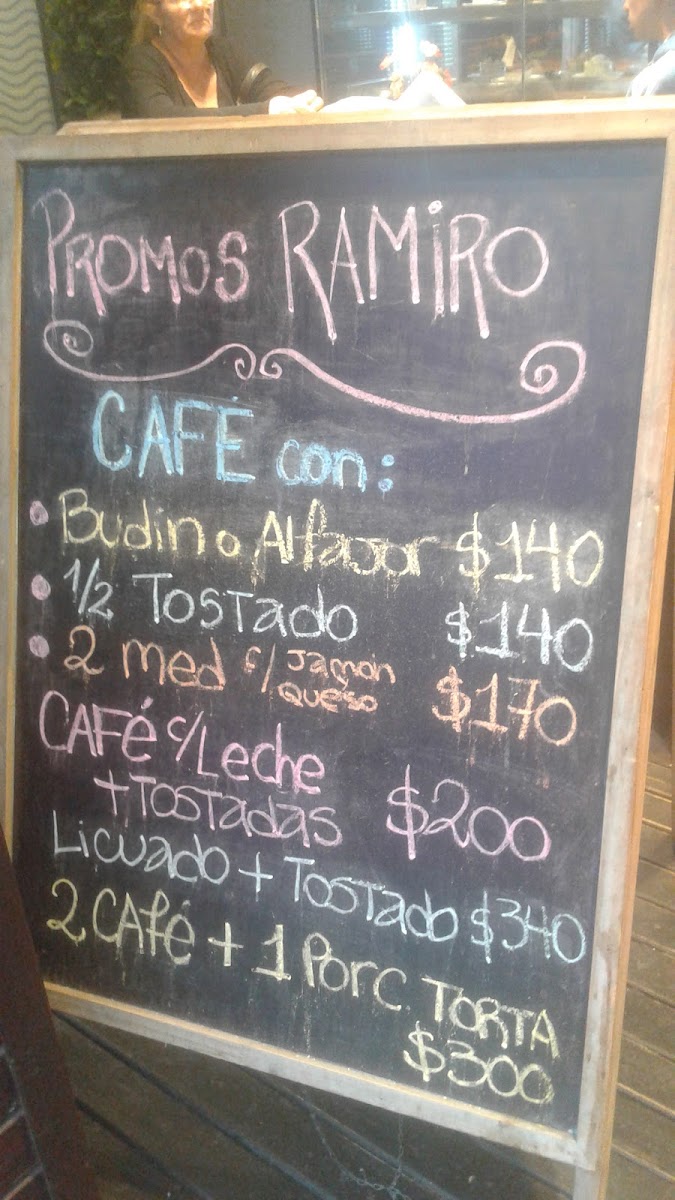 PROMOS RAMiRO
CAFÉ con:
• Budin o Alfajor $140
• 1/2 Tostado $140
• 2 med c/ Jamón Queso $170
CAFé c/Leche
+Tostadas $200
Licuado + Tostado $340
2 CAfé + 1 Porc. TORTA
$300